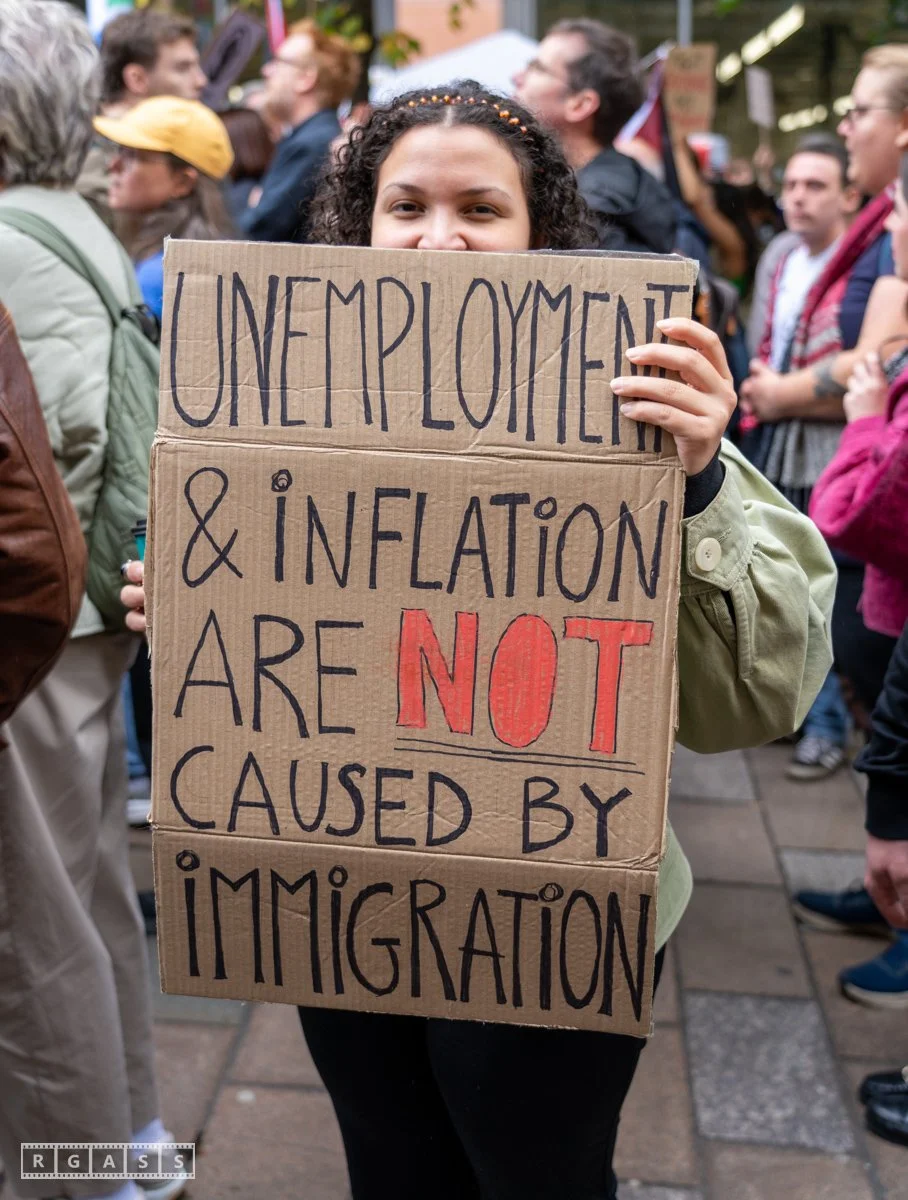 UNEMPLOYMENT
& iNFLATiON
ARE NOT
CAUSED BY
iMMiGRATiON
RGASS